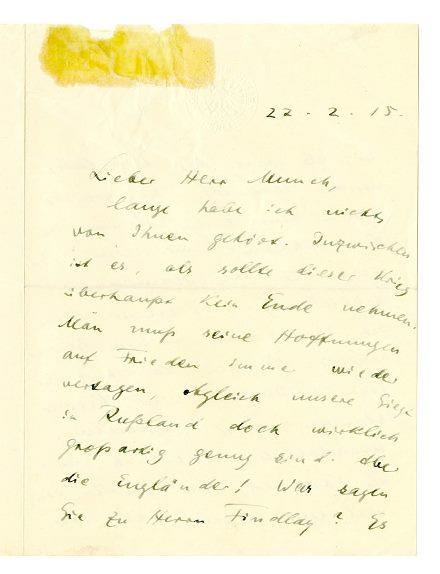 22. 2. 15.
Lieber Herr Munch,
lange habe ich nichts
von Ihnen gehört. Inzwischen
ist es, als sollte dieser Krieg
überhaupt kein Ende nehmen.
Man muß seine Hoffnungen
auf Frieden immer wieder
vertagen, obgleich unsere Siege
in Rußland doch wirklich
großartig genug sind. Aber
die Engländer! Was sagen
Sie zu Herrn Findlay? Es